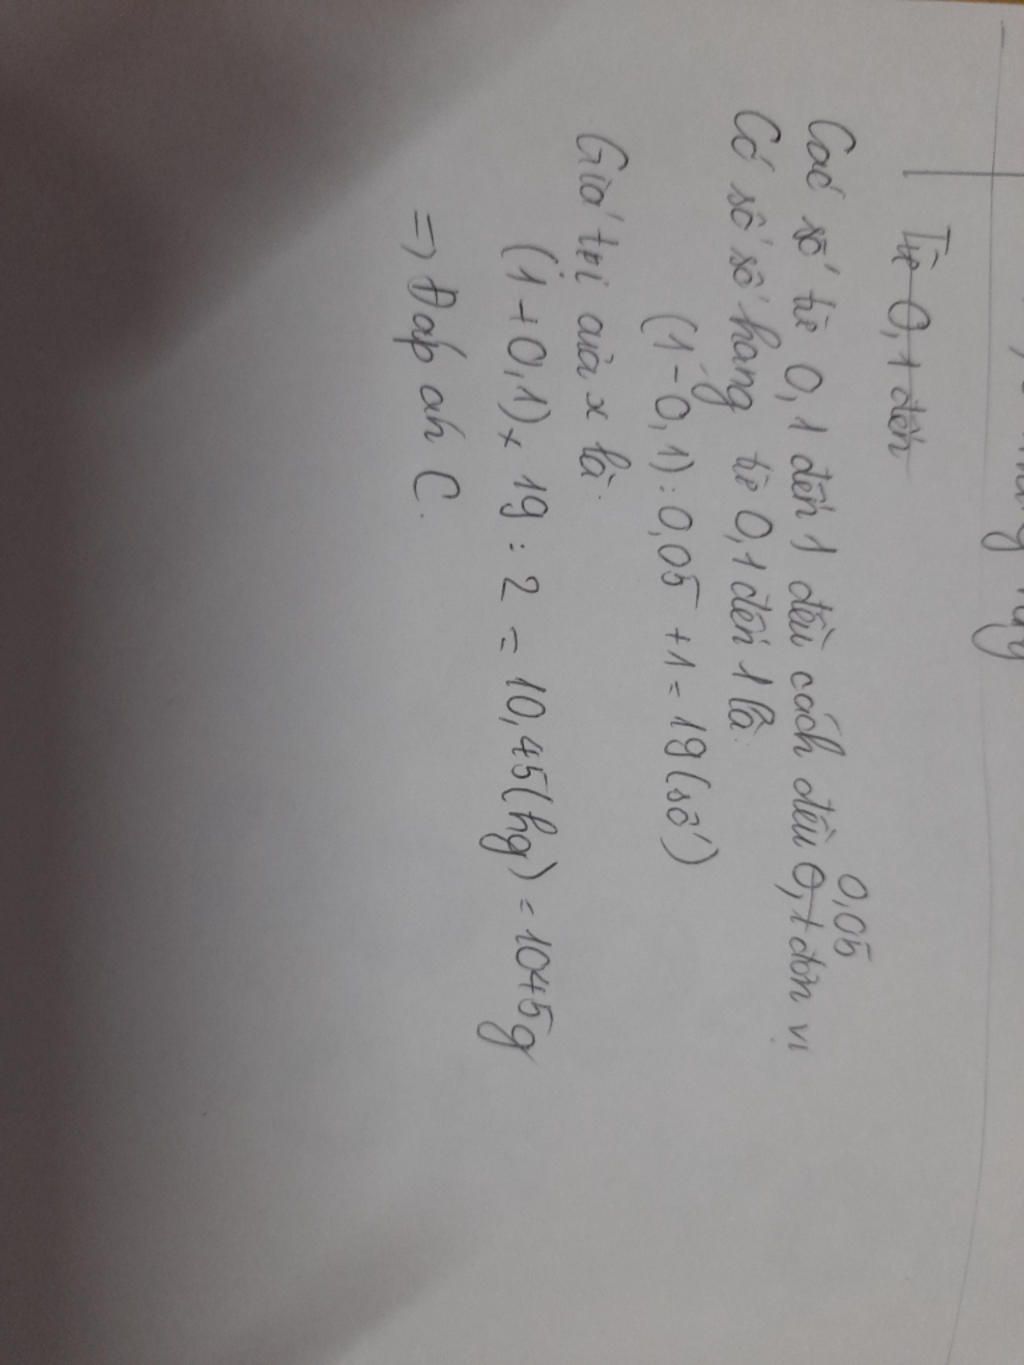 Từ 0,1 đến
Các số từ 0,1 đến 1 đều cách đều 0,1 đơn vị
0,05
Có số số hạng từ 0,1 đến 1 là:
(1 - 0,1) : 0,05 + 1 = 19 (số)
Giá trị của x là:
(1 + 0,1) x 19 : 2 = 10,45 (hg) = 1045g
=> Đáp án C.